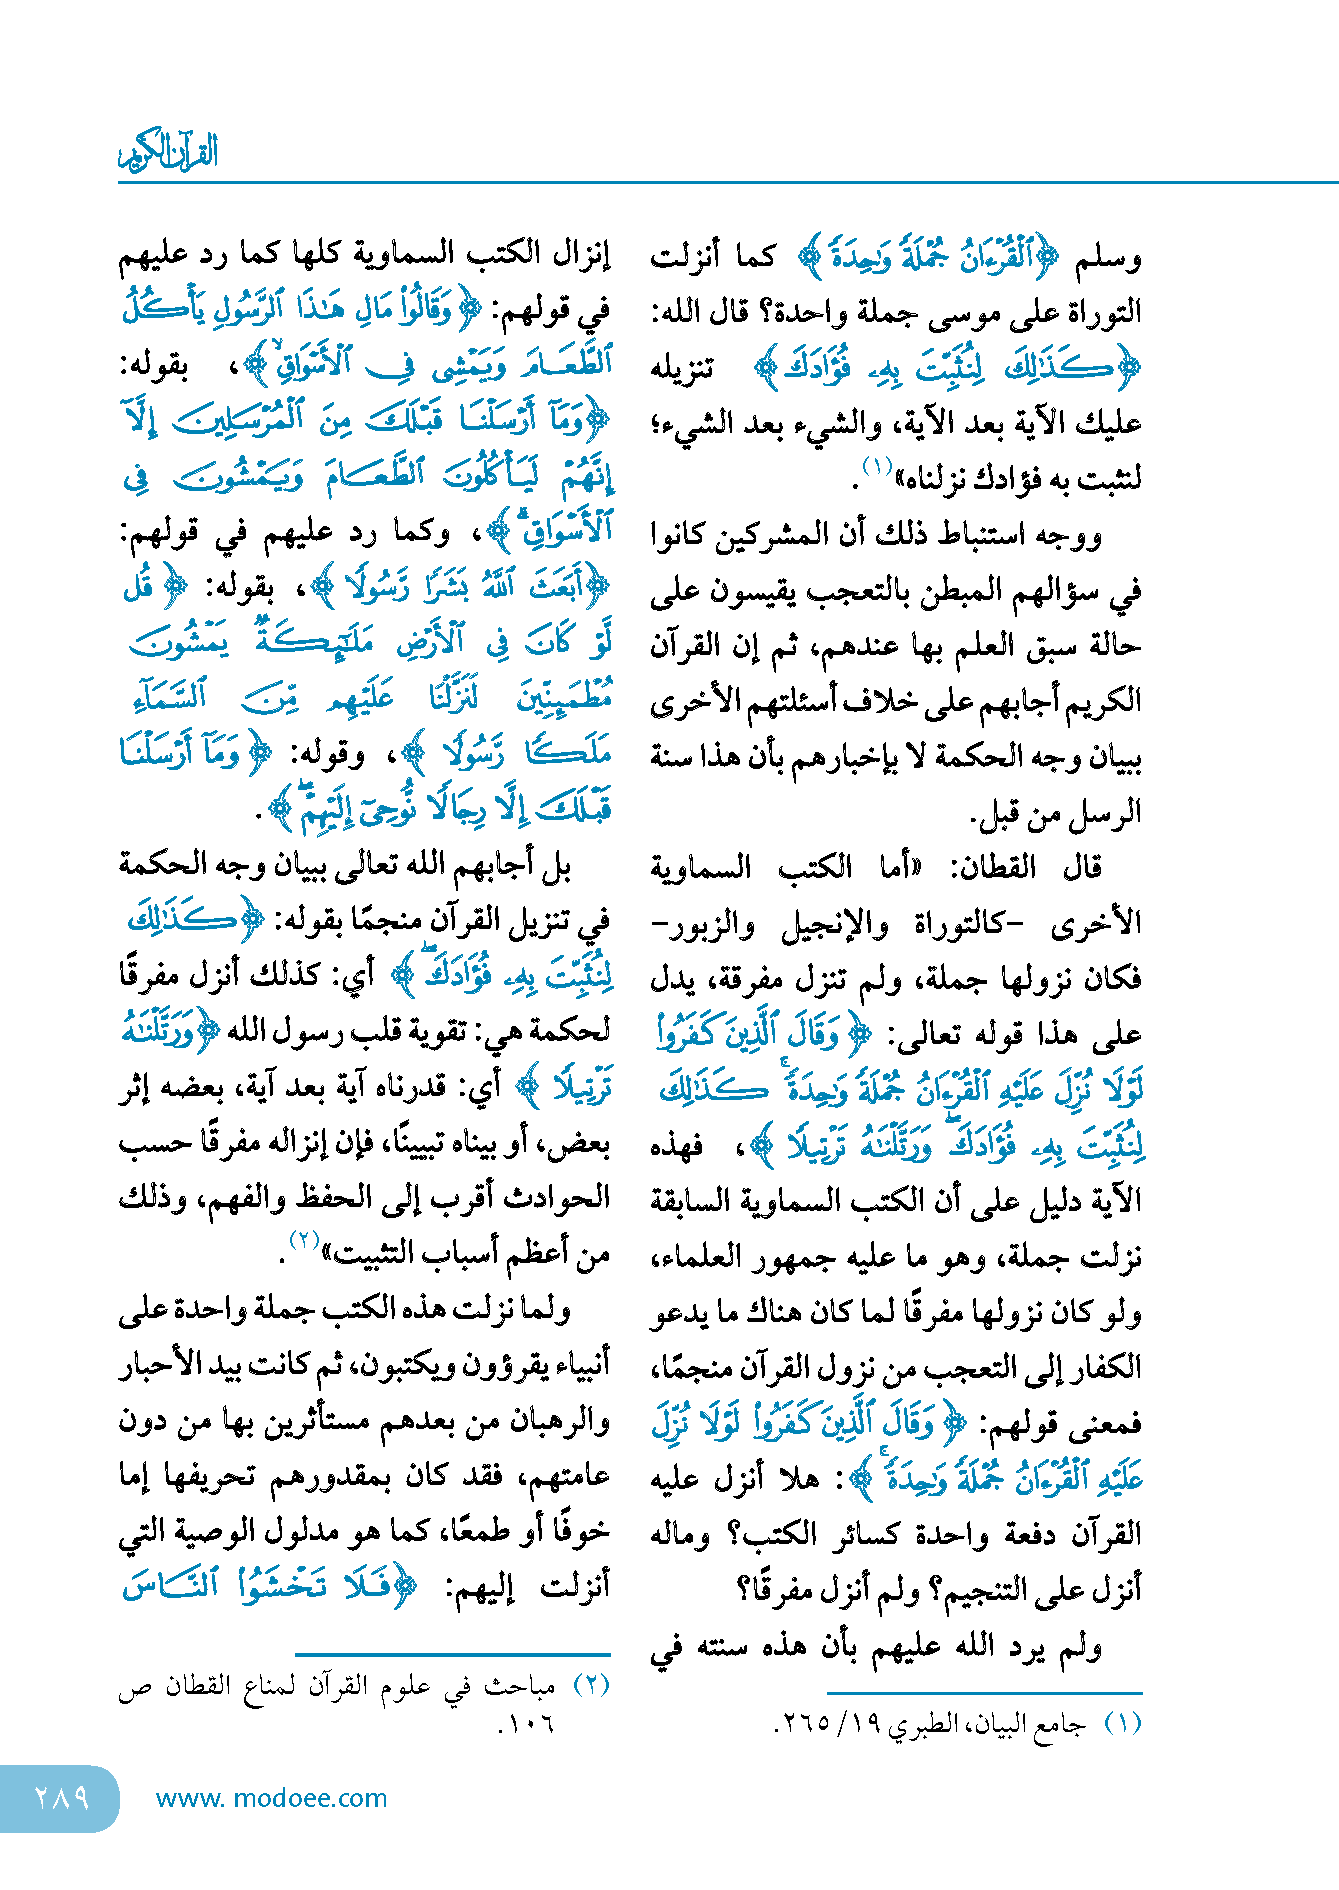 القرآن الكريم
وسلم ﴿ٱلْقُرْءَانُ جُمْلَةً وَٰحِدَةً﴾ كما أنزلت
التوراة على موسى جملة واحدة؟ قال الله:
﴿كَذَٰلِكَ لِنُثَبِّتَ بِهِۦ فُؤَادَكَ﴾ تنزيله
عليك الآية بعد الآية، والشيء بعد الشيء؛
لنثبت به فؤادك نزلناه»(١).
ووجه استنباط ذلك أن المشركين كانوا
في سؤالهم المبطن بالتعجب يقيسون على
حالة سبق العلم بها عندهم، ثم إن القرآن
الكريم أجابهم على خلاف أسئلتهم الأخرى
ببيان وجه الحكمة لا بإخبارهم بأن هذا سنة
الرسل من قبل.
قال القطان: «أما الكتب السماوية
الأخرى -كالتوراة والإنجيل والزبور-
فكان نزولها جملة، ولم تنزل مفرقة، يدل
على هذا قوله تعالى: ﴿وَقَالَ ٱلَّذِينَ كَفَرُوا۟
لَوْلَا نُزِّلَ عَلَيْهِ ٱلْقُرْءَانُ جُمْلَةً وَٰحِدَةً ۚ كَذَٰلِكَ
لِنُثَبِّتَ بِهِۦ فُؤَادَكَ ۖ وَرَتَّلْنَٰهُ تَرْتِيلًا﴾، فهذه
الآية دليل على أن الكتب السماوية السابقة
نزلت جملة، وهو ما عليه جمهور العلماء،
ولو كان نزولها مفرقًا لما كان هناك ما يدعو
الكفار إلى التعجب من نزول القرآن منجمًا،
فمعنى قولهم: ﴿وَقَالَ ٱلَّذِينَ كَفَرُوا۟ لَوْلَا نُزِّلَ
عَلَيْهِ ٱلْقُرْءَانُ جُمْلَةً وَٰحِدَةً ۚ﴾: هلا أنزل عليه
القرآن دفعة واحدة كسائر الكتب؟ وماله
أنزل على التنجيم؟ ولم أنزل مفرقًا؟
ولم يرد الله عليهم بأن هذه سنته في
(١) جامع البيان، الطبري ١٩/ ٢٦٥.
إنزال الكتب السماوية كلها كما رد عليهم
في قولهم: ﴿وَقَالُوا۟ مَالِ هَٰذَا ٱلرَّسُولِ يَأْكُلُ
ٱلطَّعَامَ وَيَمْشِى فِى ٱلْأَسْوَاقِ ۙ﴾، بقوله:
﴿وَمَآ أَرْسَلْنَا قَبْلَكَ مِنَ ٱلْمُرْسَلِينَ إِلَّآ
إِنَّهُمْ لَيَأْكُلُونَ ٱلطَّعَامَ وَيَمْشُونَ فِى
ٱلْأَسْوَاقِ ۗ﴾، وكما رد عليهم في قولهم:
﴿أَبَعَثَ ٱللَّهُ بَشَرًا رَّسُولًا﴾، بقوله: ﴿قُل
لَّوْ كَانَ فِى ٱلْأَرْضِ مَلَٰٓئِكَةٌ يَمْشُونَ
مُطْمَئِنِّينَ لَنَزَّلْنَا عَلَيْهِم مِّنَ ٱلسَّمَآءِ
مَلَكًا رَّسُولًا﴾، وقوله: ﴿وَمَآ أَرْسَلْنَا
قَبْلَكَ إِلَّا رِجَالًا نُّوحِىٓ إِلَيْهِمْ ۖ﴾.
بل أجابهم الله تعالى ببيان وجه الحكمة
في تنزيل القرآن منجمًا بقوله: ﴿كَذَٰلِكَ
لِنُثَبِّتَ بِهِۦ فُؤَادَكَ ۖ﴾ أي: كذلك أنزل مفرقًا
لحكمة هي: تقوية قلب رسول الله ﴿وَرَتَّلْنَٰهُ
تَرْتِيلًا﴾ أي: قدرناه آية بعد آية، بعضه إثر
بعض، أو بيناه تبيينًا، فإن إنزاله مفرقًا حسب
الحوادث أقرب إلى الحفظ والفهم، وذلك
من أعظم أسباب التثبيت»(٢).
ولما نزلت هذه الكتب جملة واحدة على
أنبياء يقرؤون ويكتبون، ثم كانت بيد الأحبار
والرهبان من بعدهم مستأثرين بها من دون
عامتهم، فقد كان بمقدورهم تحريفها إما
خوفًا أو طمعًا، كما هو مدلول الوصية التي
أنزلت إليهم: ﴿فَلَا تَخْشَوُا۟ ٱلنَّاسَ
(٢) مباحث في علوم القرآن لمناع القطان ص
١٠٦.
www. modoee.com
٢٨٩